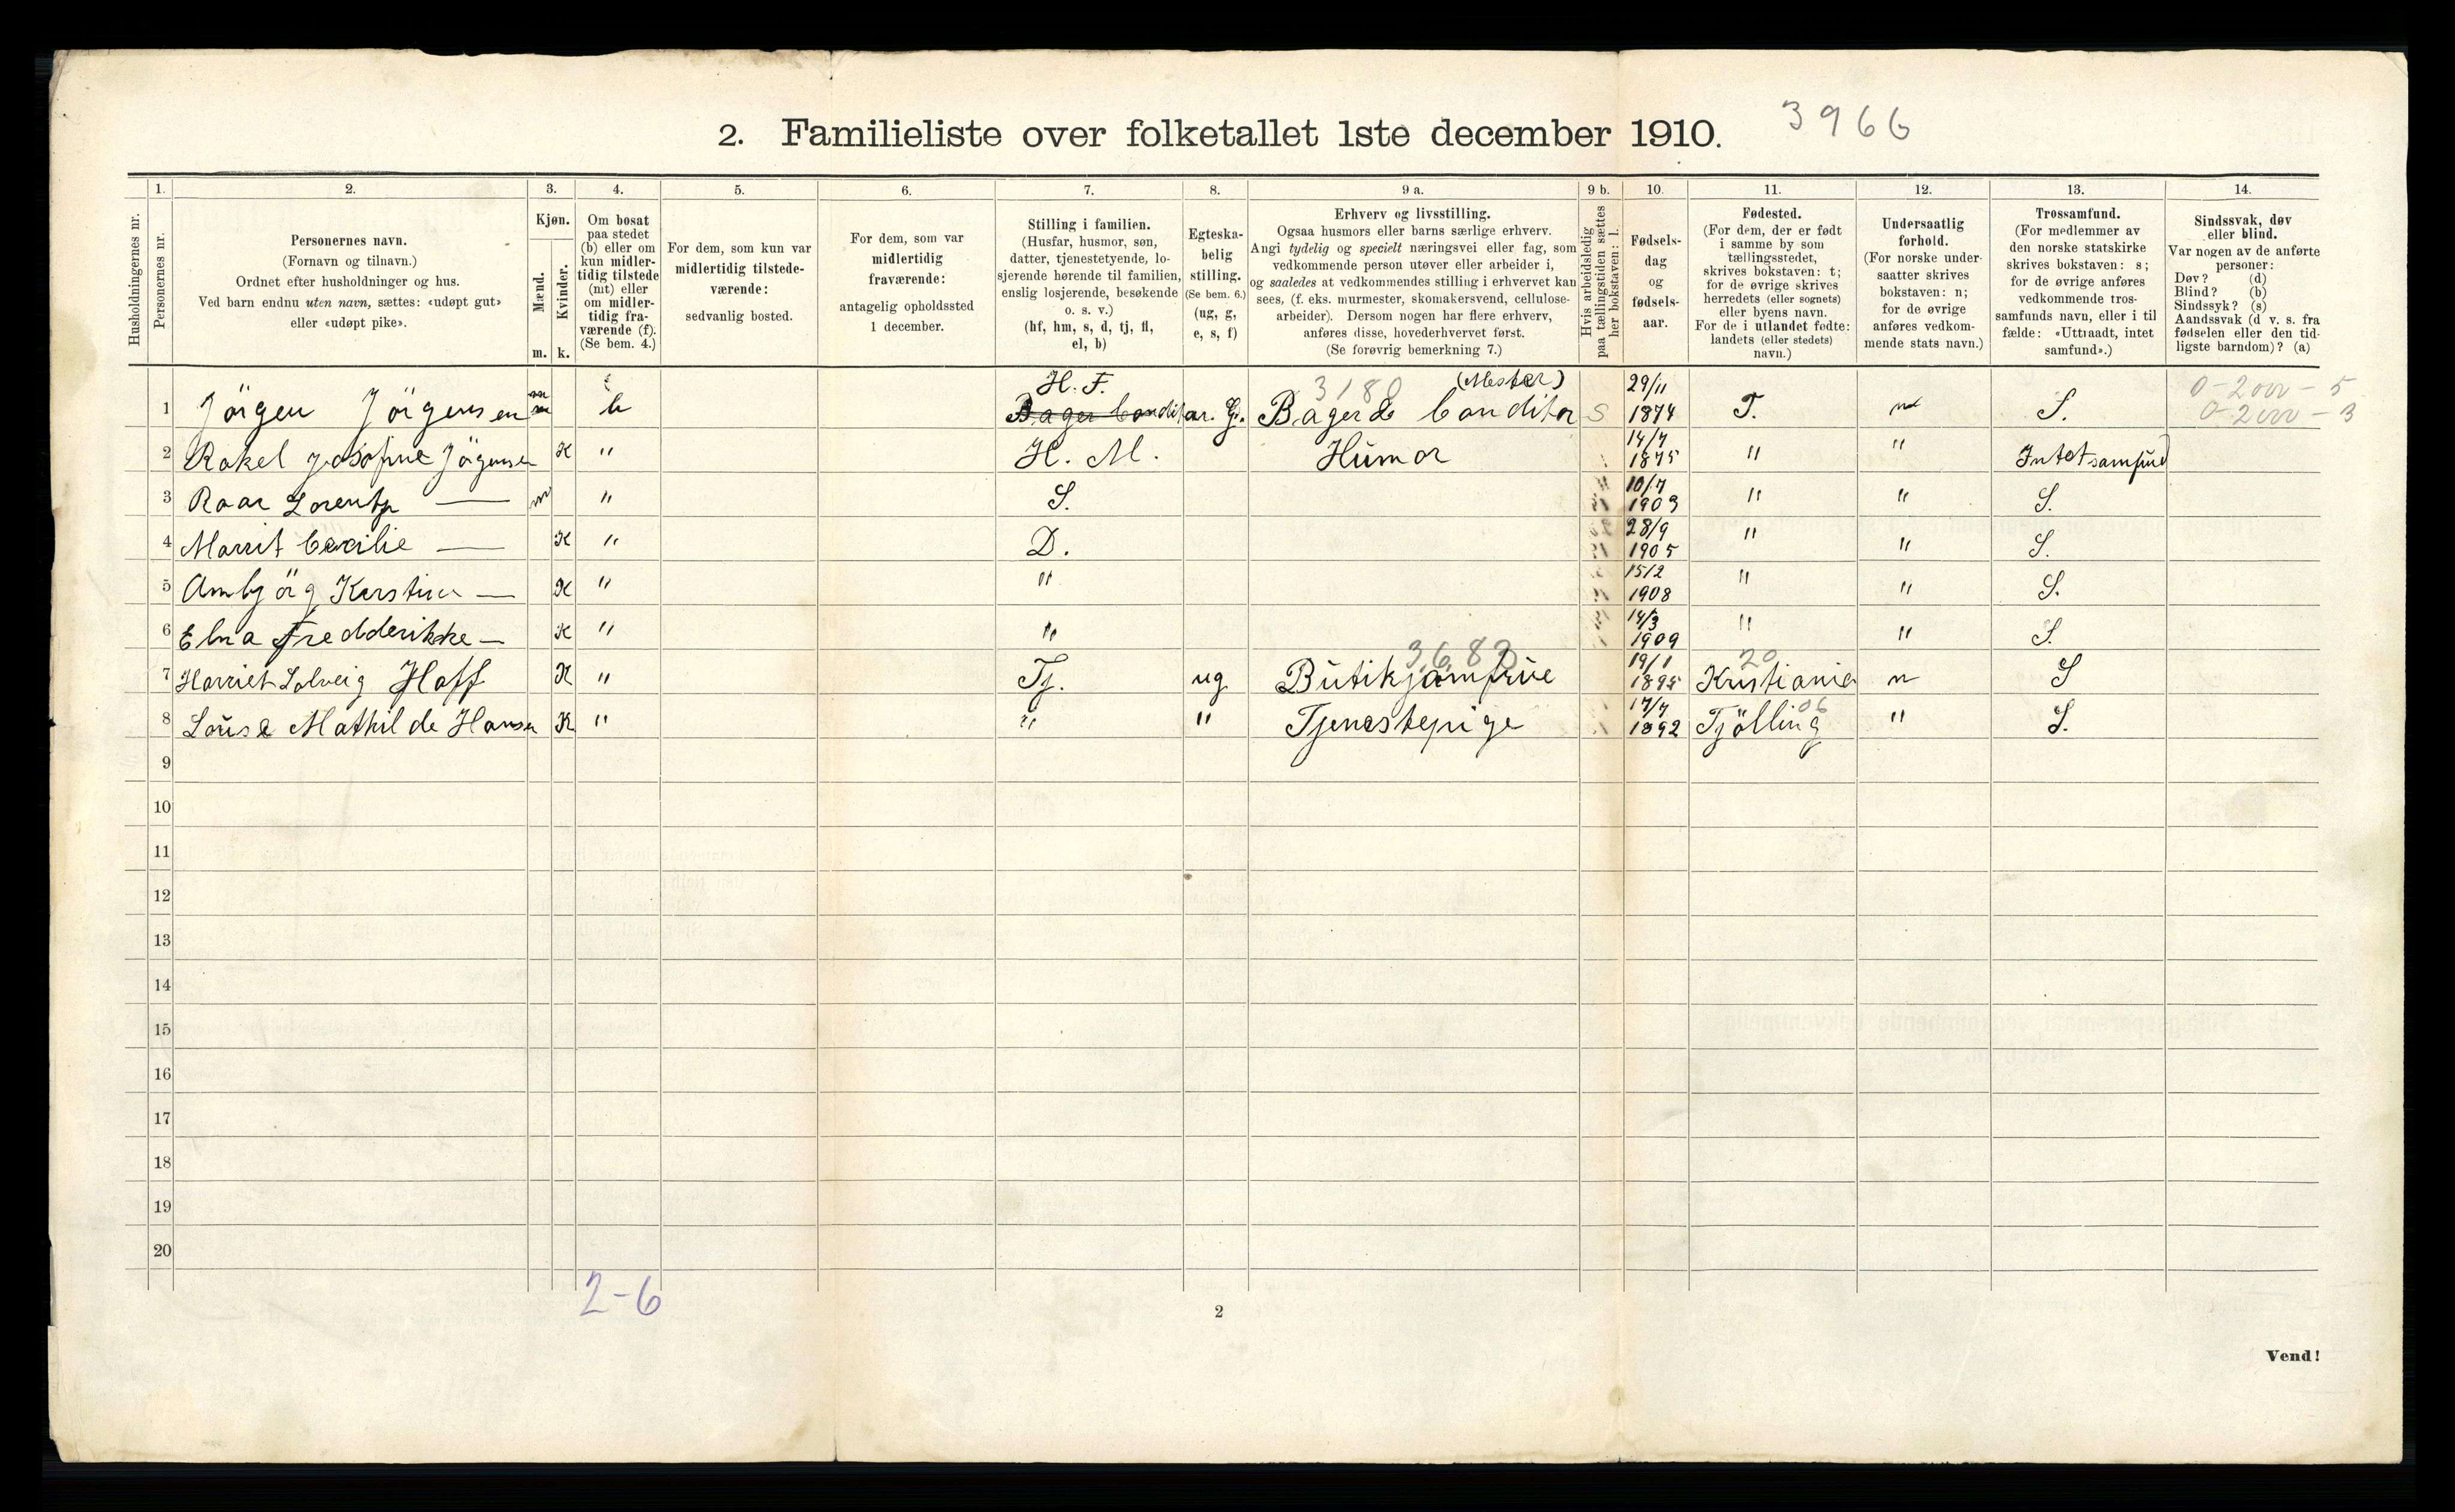 2. Familieliste over folketallet 1ste december 1910. 3966
1. 2. 3. 4. 5. 6. 7. 8. 9 a. 9 b. 10. 11. 12. 13. 14.
Husholdningernes nr.
Personernes nr.
Personernes navn.
(Fornavn og tilnavn.)
Ordnet efter husholdninger og hus.
Ved barn endnu uten navn, sættes: «udøpt gut»
eller «udøpt pike».
Kjøn.
Mænd.
Kvinder.
m. k.
Om bosat
paa stedet
(b) eller om
kun midler-
tidig tilstede
(mt) eller
om midler-
tidig fra-
værende (f).
(Se bem. 4.)
For dem, som kun var
midlertidig tilstede-
værende:
sedvanlig bosted.
For dem, som var
midlertidig
fraværende:
antagelig opholdssted
1 december.
Stilling i familien.
(Husfar, husmor, søn,
datter, tjenestetyende, lo-
sjerende hørende til familien,
enslig losjerende, besøkende
o. s. v.)
(hf, hm, s, d, tj, fl,
el, b)
Egteska-
belig
stilling.
(Se bem. 6.)
(ug, g,
e, s, f)
Erhverv og livsstilling.
Ogsaa husmors eller barns særlige erhverv.
Angi tydelig og specielt næringsvei eller fag, som
vedkommende person utøver eller arbeider i,
og saaledes at vedkommendes stilling i erhvervet kan
sees, (f. eks. murmester, skomakersvend, cellulose-
arbeider). Dersom nogen har flere erhverv,
anføres disse, hovederhvervet først.
(Se forøvrig bemerkning 7.)
Hvis arbeidsledig
paa tællingstiden sættes
her bokstaven: l.
Fødsels-
dag
og
fødsels-
aar.
Fødested.
(For dem, der er født
i samme by som
tællingsstedet,
skrives bokstaven: t;
for de øvrige skrives
herredets (eller sognets)
eller byens navn.
For de i utlandet fødte:
landets (eller stedets)
navn.)
Undersaatlig
forhold.
(For norske under-
saatter skrives
bokstaven: n;
for de øvrige
anføres vedkom-
mende stats navn.)
Trossamfund.
(For medlemmer av
den norske statskirke
skrives bokstaven: s;
for de øvrige anføres
vedkommende tros-
samfunds navn, eller i til
fælde: «Uttraadt, intet
samfund».)
Sindssvak, døv
eller blind.
Var nogen av de anførte
personer:
Døv? (d)
Blind? (b)
Sindssyk? (s)
Aandssvak (d v. s. fra
fødselen eller den tid-
ligste barndom)? (a)
H. F. 3180 (Mester) 29/11 0-2000-5
1 Jörgen Jörgensen m b Bager Conditor. G. Bager & Conditor S 1874 T. n S. 0-2000-3
2 Rakel Josofine Jörgensen K " H. M. Húmor 14/7 1875 " " Intet samfúnd
3 Roar Lorentz — m " S. 10/7 1903 " " S.
4 Marrit Cecilie — K " D. 28/9 1905 " " S.
5 Ambjörg Kerstine — K " " 15/2 1908 " " S.
6 Elna Fredderikke — K " " 14/3 1909 " " S.
3683 20
7 Harriet Solveig Hoff K " Tj. ug Bútikjomfrúe 19/1 1895 Kristiania n S
06
8 Loúise Mathilde Hansen K " " " Tjenestepige 17/7 1892 Tjölling " S.
9
10
11
12
13
14
15
16
17
18
19
20
2-6
2
Vend!